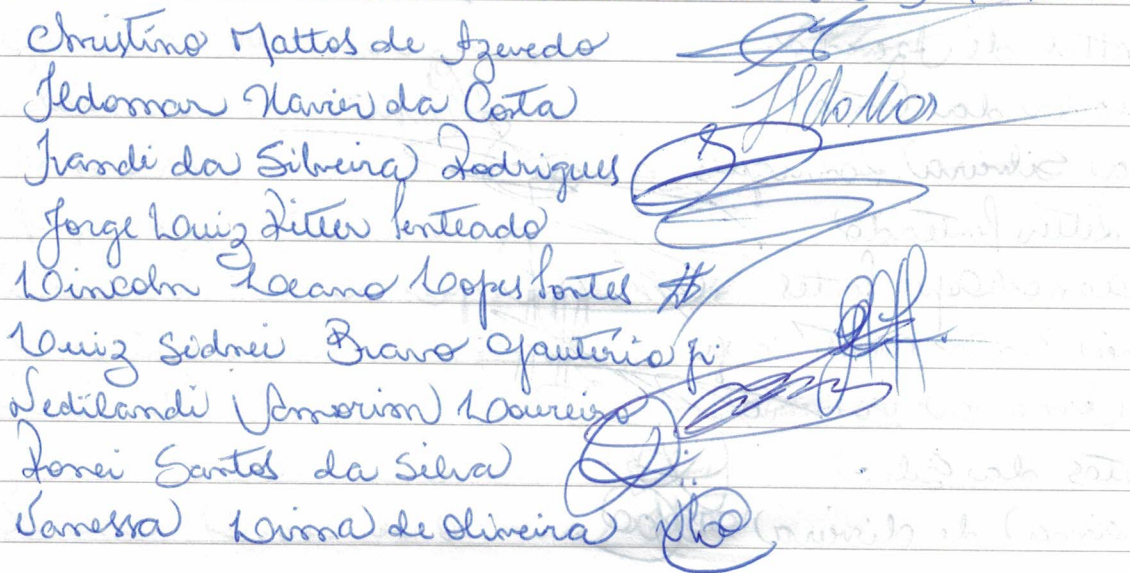 Christino Mattos de Azevedo
Ildomar Xavier da Costa
Irandi da Silveira Rodrigues
Jorge Luiz Ritter Penteado
Lincoln Leano Lopes Fontes #
Luiz Sidnei Bravo Gautério Jr.
Ledilandi Amorim Loureiro
Ronei Santos da Silva
Vanessa Lima de Oliveira